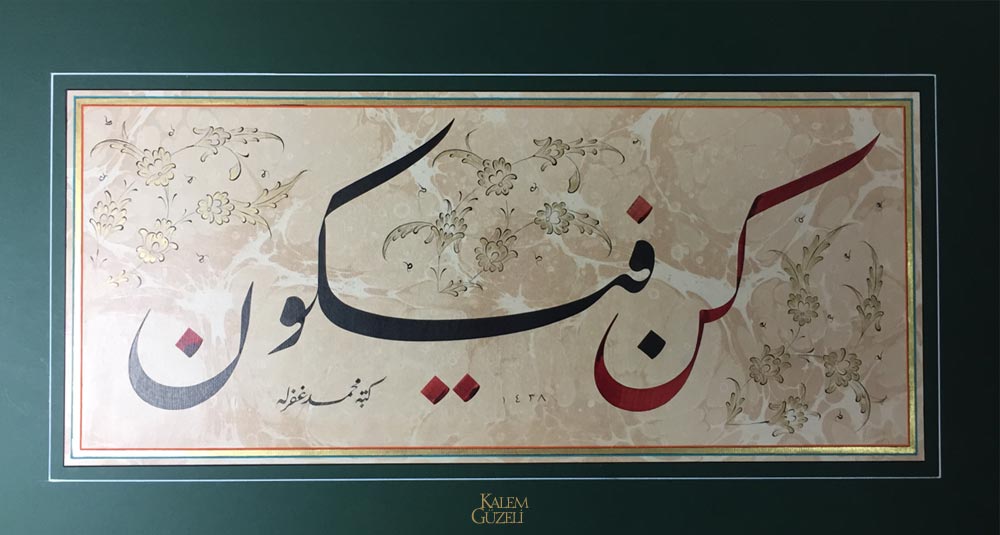 كن فيكون
كتبه محمد غفرله
١٤٣٨
KALEM
GÜZELİ